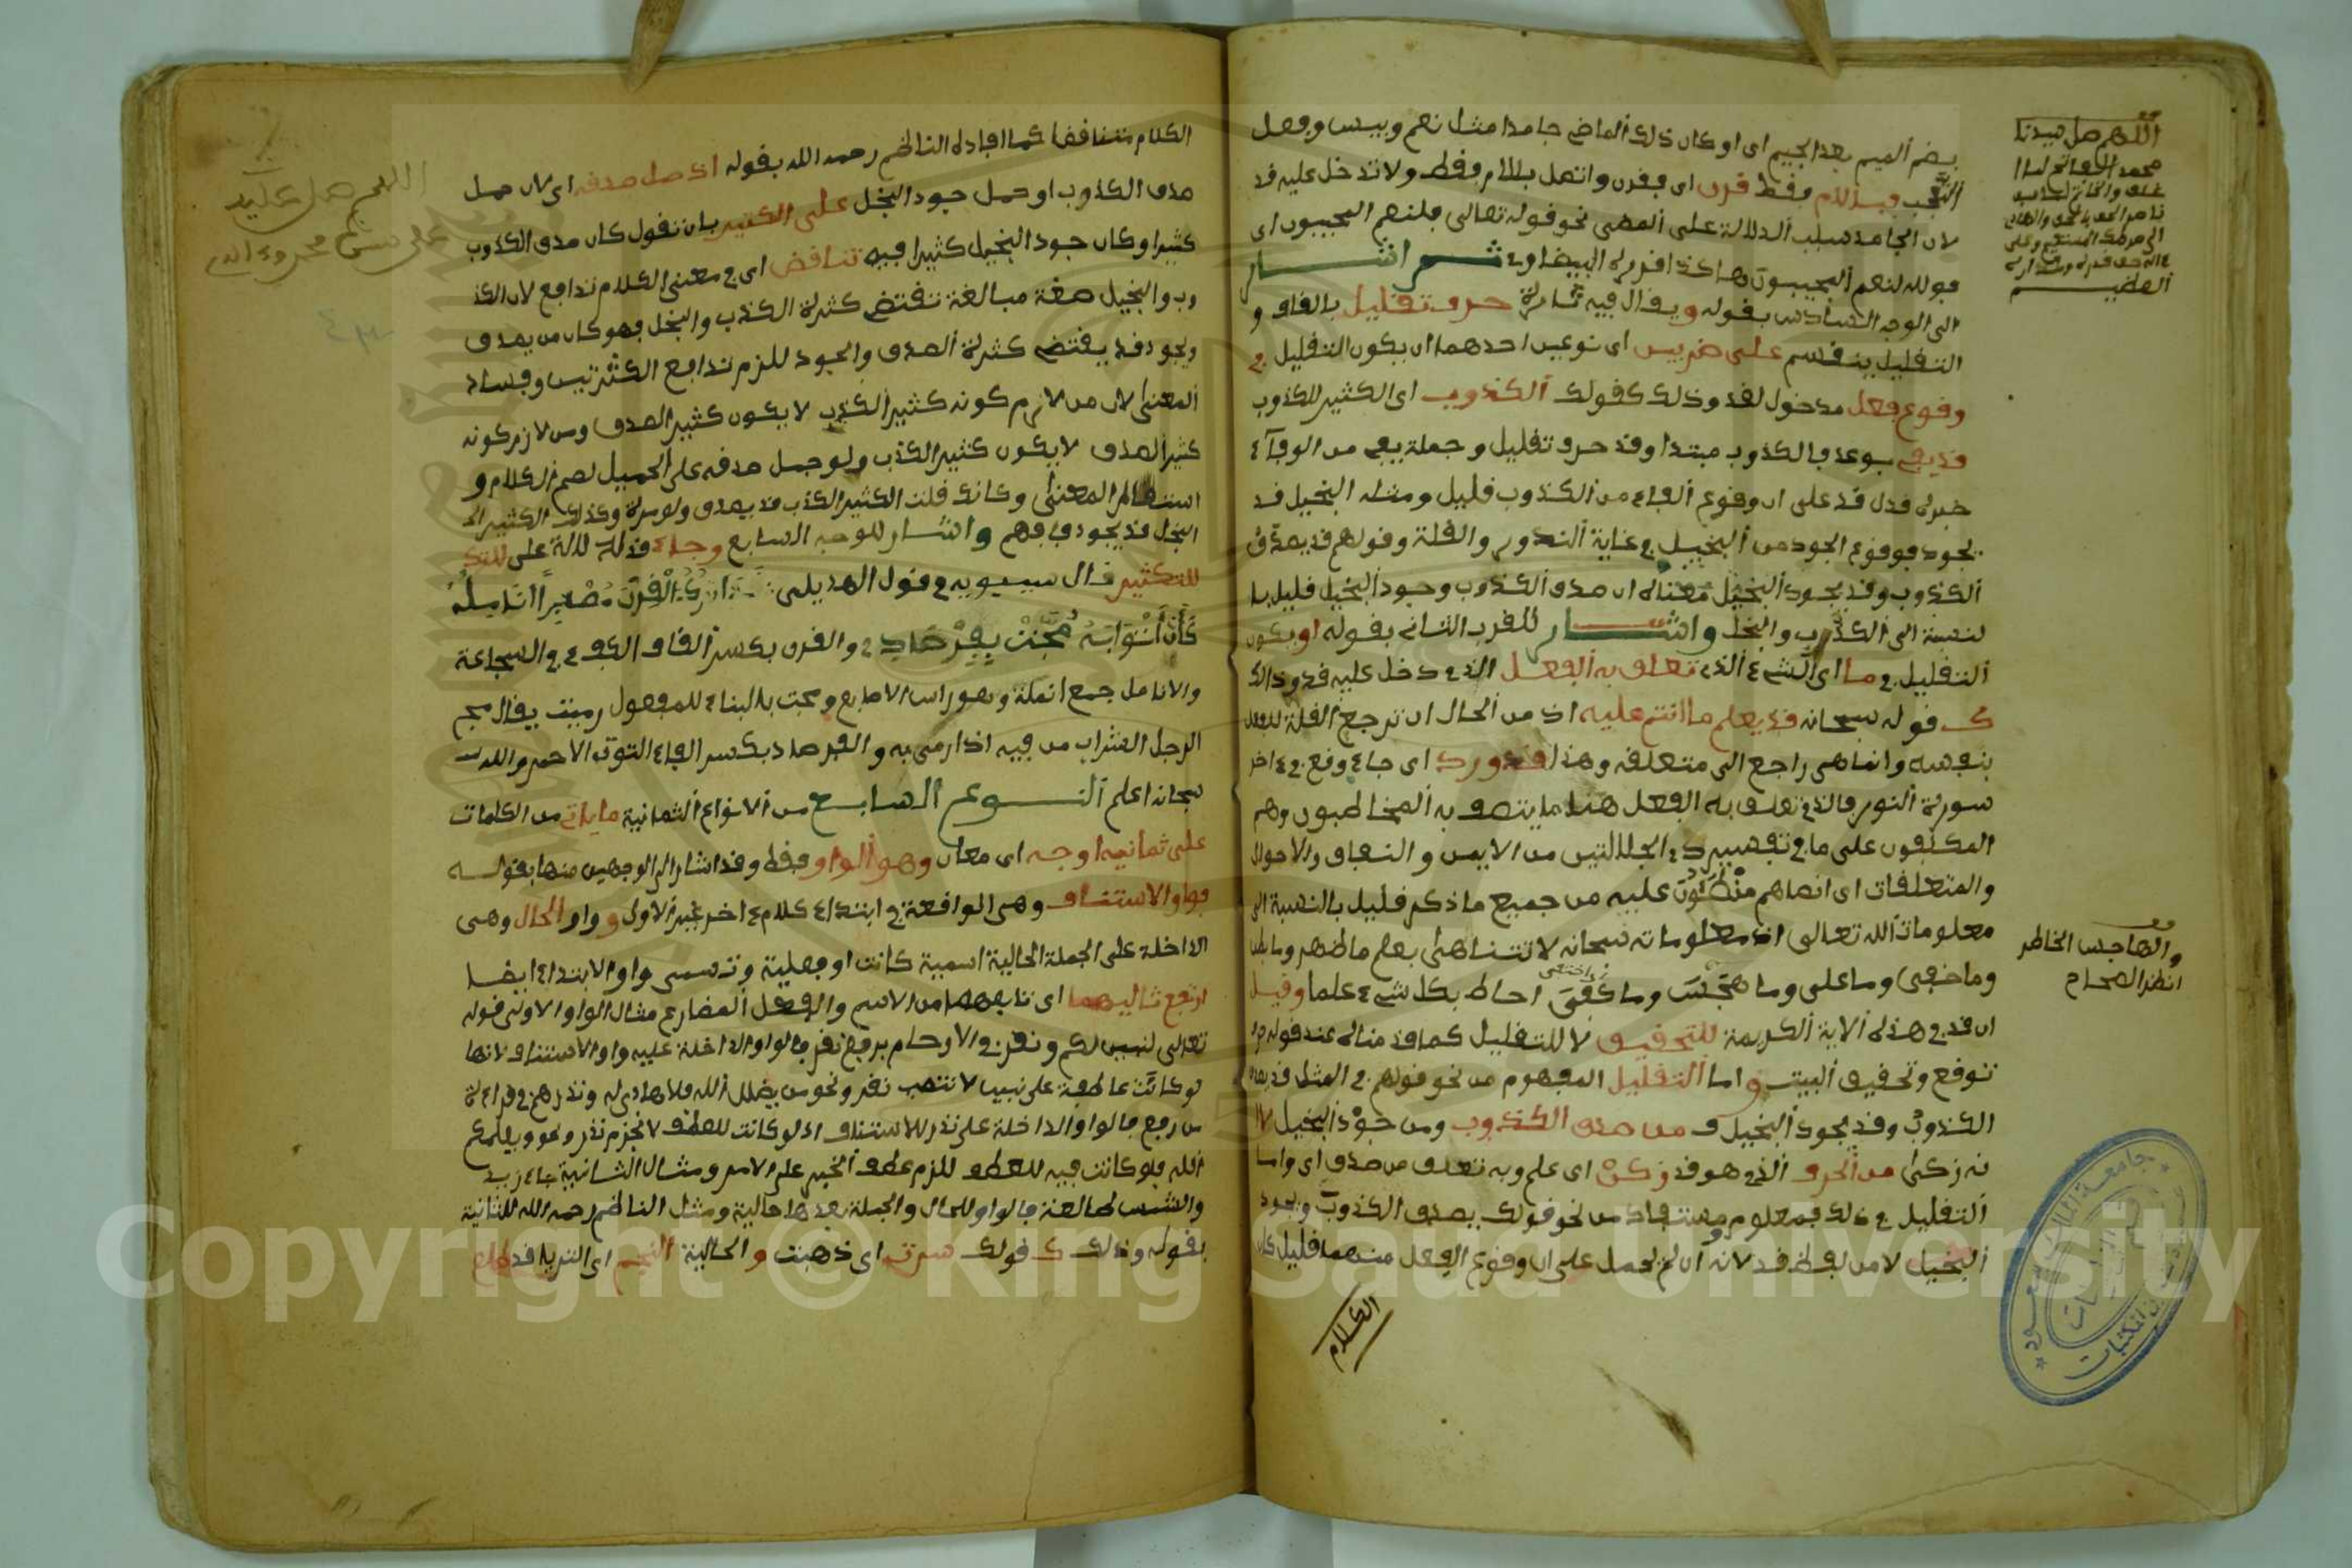 بضم الميم بعد الجيم اى او كان ذلك الماضى جامدا مثل نعم وبيس وفعل
التعجب فبـاللام فقط قرن اى فقرن واتصل باللام فقط ولا تدخل عليه قد
لان الجامد سلب الدلالة على المضى نحو قوله تعالى فلنعم المجيبون اى
فوالله لنعم المجيبون هاكذا قرره البيضاوي ثم اشار
الى الوجه السادس بقوله ويقال فيه تارة حرف تقليل بالقاف و
التقليل ينقسم على ضربين اى نوعين احدهما ان يكون التقليل في
وقوع فعل مدخول لقد وذلك كقولك الكذوب اى الكثير للكذوب
قد يفى بوعد فالكذوب مبتدا وقد حرف تقليل وجملة يفى من الوفآء
خبره فدل قد على ان وقوع الوفاء من الكذوب قليل ومثله البخيل قد
يجود فوقوع الجود من البخيل في غاية الندور والقلة وقولهم قد يصدق
الكذوب وقد يجود البخيل معناه ان صدق الكذوب وجود البخيل قليل با
لنسبة الى الكذب والبخل واشار للضرب الثانى بقوله او يكون
التقليل في ما اى الشيء الذى تعلق به الفعل الذي دخل عليه قد وذالك
كـ قوله سبحانه قد يعلم ما انتم عليه اذ من الحال ان ترجع القلة للفعل
بنفسه وانما هى راجع الى متعلقه وهذا قد ورد اى جاء وقع في ءاخر
سورة النور فالذي تعلق به الفعل هنا ما يتصف به المخاطبون وهم
المكلفون على ما في تفسير ذي الجلالتين من الايمن والنفاق والاحوال
والمتعلقات اى انما هم منطوون عليه من جميع ما ذكر قليل بالنسبة الى
معلومات الله تعالى اذ معلوماته سبحانه لا تتناهى يعلم ما ظهر وما بطن
وما خفى وما على وما هجس وما خفق احاط بكل شيء علما وقيل
ان قد في هذه الاية الكريمة للتحقيق لا للتقليل كما قدمناه عند قوله
توقع وتحقيق البيت واما التقليل المفهوم من نحو قولهم في المثل قد يصدق
الكذوب وقد يجود البخيل فـ من صدق الكذوب ومن جود البخيل لا
نه زكنى من الحرف الذي هو قد زكن اى علم وبه تعلق من صدق اى واما
التقليل في ذلك فمعلوم ومستفاد من نحو قولك يصدق الكذوب ويجود
البخيل لا من لفظ قد لانه ان لم يحمل على ان وقوع الفعل منهما قليل كان
الكلام
اللهم صل سيدنا
محمد الفاتح لما ا
غلق والخاتم لما سبق
ناصر الحق بالحق والهادى
الى صراطك المستقيم وعلى
ءاله حق قدره ومقداره
العظيم
والهاجس الخاطر
انظر الصحاح
الكلام متناقضا كما افاده الناظم رحمه الله بقوله اذ حمل صدقه اى لان حمل
صدق الكذوب او حمل جود البخل على الكثير بان تقول كان صدق الكذوب
كثيرا وكان جود البخيل كثيرا فيه تناقض اى في معنى الكلام تدافع لان الكذ
وب والبخيل صغة مبالغة تقتضى كثرة الكذب والبخل فهو كان من يصدق
ويجود قد يقتضى كثرة الصدق والجود للزم تدافع الكثرتين وفساد
المعنى لان من لازم كونه كثير الكذب لا يكون كثير الصدق ومن لازم كونه
كثير الصدق لا يكون كثير الكذب ولو حمل صدقه على الجميل لصح الكلام و
استقام المعنى وكانك قلت الكثير الكذب قد يصدق ولو مرة وكذلك الكثير ا
البخل قد يجود فافهم واشار للوجه السابع وجاء قد له دلالة على للتكـ
للتكثير قال سيبويه في قول الهذيلى قد اترك القرن مصفرا انامله
كأن أثوابه مجت بفرصاد والقرن بكسر القاف الكفء في الشجاعة
والانامل جمع انملة وهو راس الاصابع ومجت بالبناء للمفعول رميت يقال مج
الرجل الشراب من فيه اذا رمى به والفرصاد بكسر الفاء التوت الاحمر والله
سبحانه اعلم النوع السابع من الانواع الثمانية ما ياتي من الكلمات
على ثمانية اوجه اى معان وهو الواو فقط وقد اشار الى الوجهين منها بقوله
فواو الاستئناف وهى الواقعة في ابتداء كلام ءاخر غير الاول و واو الحال وهى
الداخلة على الجملة الحالية اسمية كانت او فعلية وتسمى واو الابتداء ايضا
ارفع تاليهما اى تابعهما من الاسم والفعل المضارع مثال الواو الاولى قوله
تعالى لنبين لكم ونقر في الارحام برفع نقر فالواو الداخلة عليه واو الاستئناف لانها
لو كانت عاطفة على نبين لانتصب نقر ونحو من يضلل الله فلا هادى له ونذرهم في قراءة
من رفع فالواو الداخلة على نذر للاستئناف اذ لو كانت للعطف لانجزم نذر ونحو ويعلمكم
الله فلو كانت فيه للعطف للزم عطف الخبر على الامر ومثال الثانية جاء زيد
والشمس طالعة فالواو للحال والجملة بعدها حالية ومثل الناظم رحمه الله للثانية
بقوله وذلك كـ قولك سرت اى ذهبت و الحالية النجم اى الثريا قد طلع
اللهم صل على سيد
Copyright © King Saud University